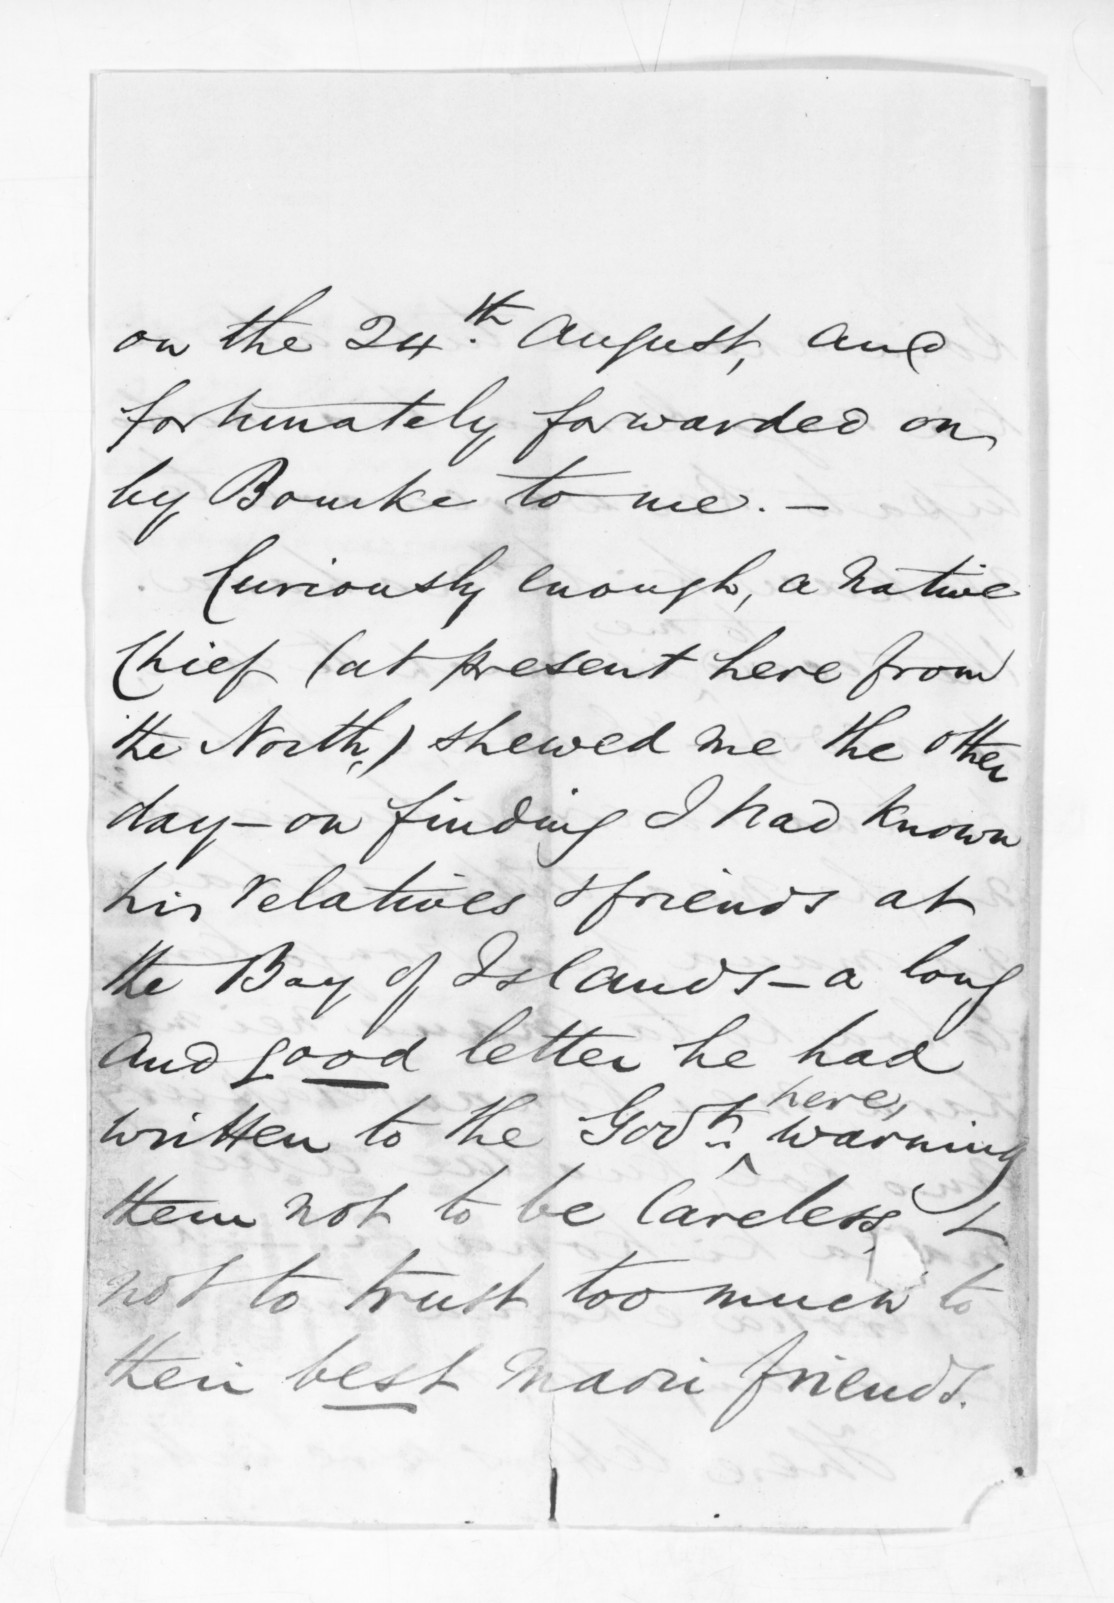 on the 24.th August, and
fortunately forwarded on
by Bourke to me. —
Curiously enough, a native
Chief (at present here from
the North,) shewed me the other
day — on finding I had known
his relatives & friends at
the Bay of Islands — a long
and good letter he had
written to the Govt. here, warning
them not to be careless, &
not to trust too much to
their best Maori friends.